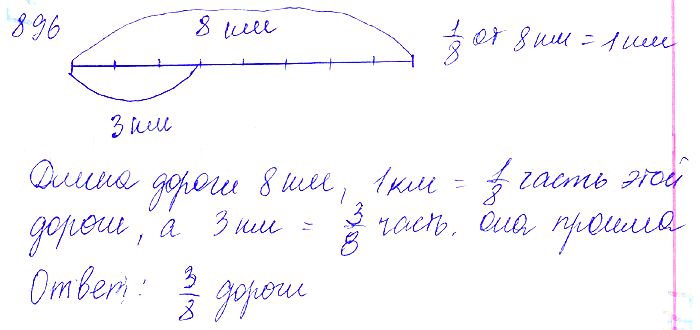 896
8 км
1/8 от 8 км = 1 км
3 км
Длина дороги 8 км, 1 км = 1/8 часть этой
дороги, а 3 км = 3/8 часть. она прошла
Ответ: 3/8 дороги